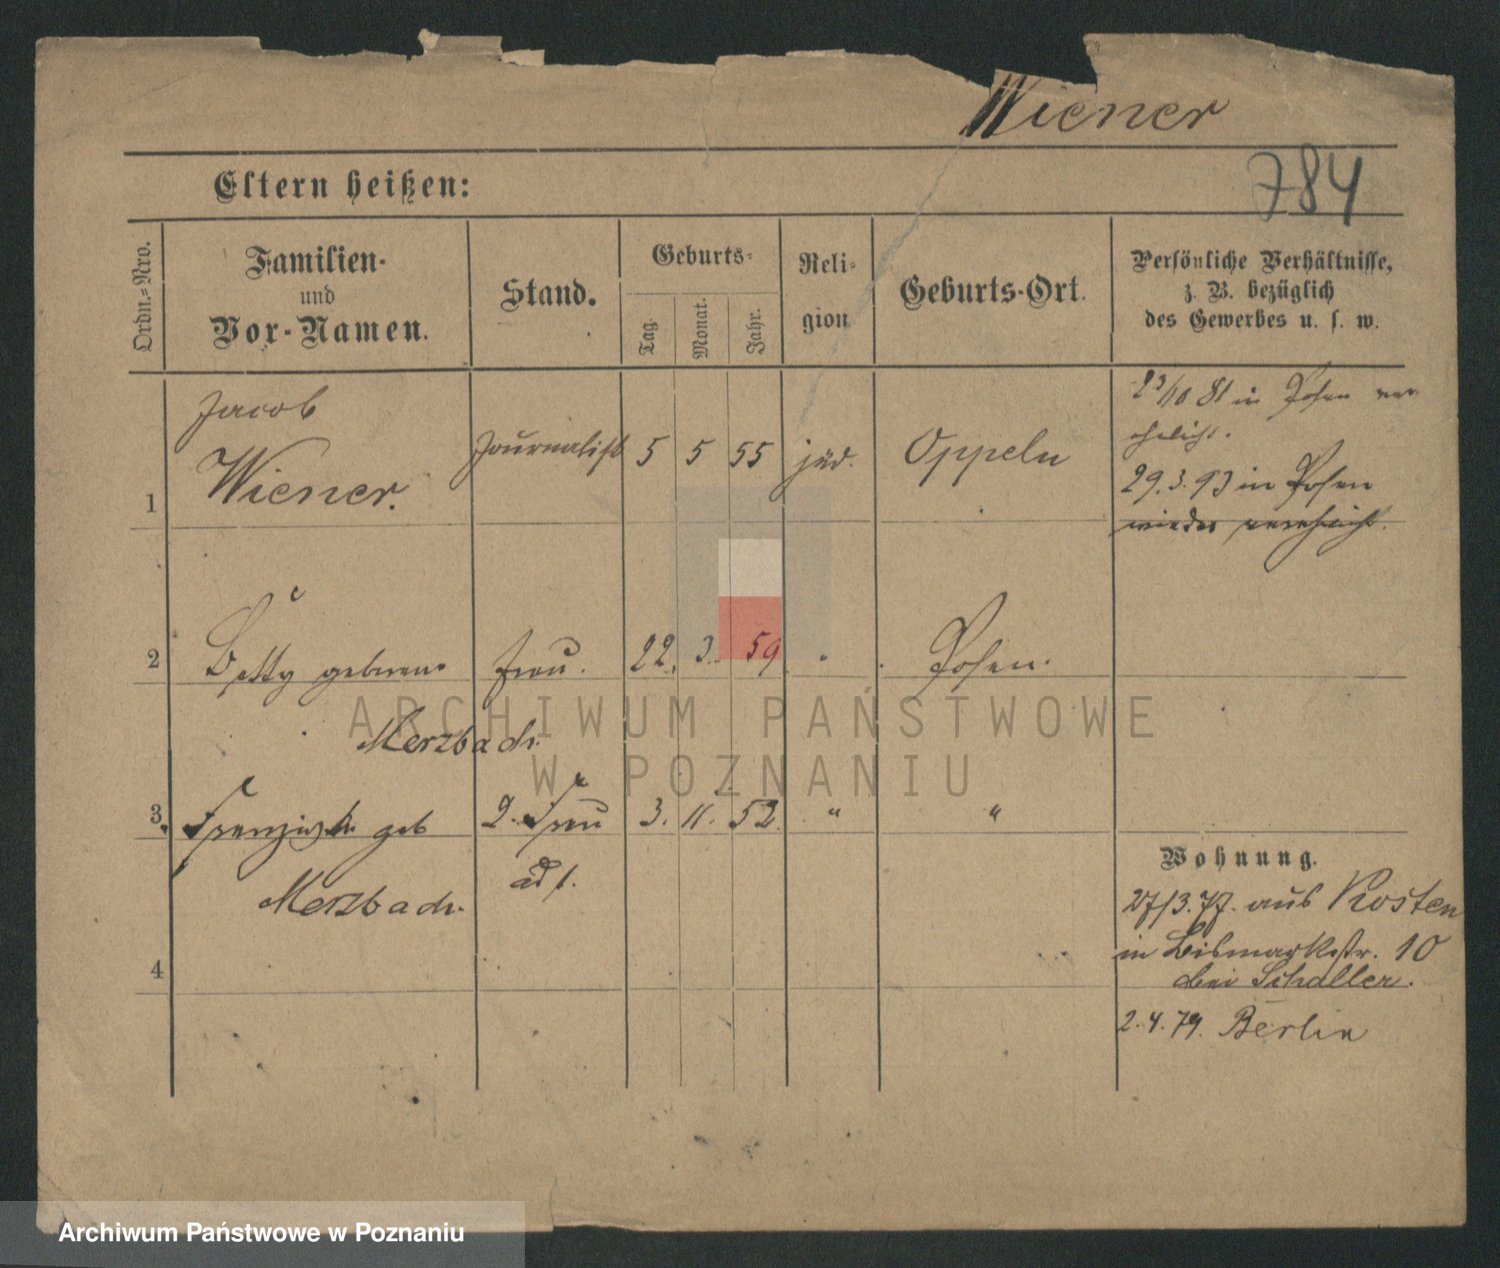 Wiener
784
Eltern heißen:
Ordn.-Nro.
Familien-
und
Vor-Namen.
Stand.
Geburts-
Tag.
Monat.
Jahr.
Reli-
gion
Geburts-Ort.
Persönliche Verhältnisse,
z. B. bezüglich
des Gewerbes u. s. w.
1
Jacob
Wiener.
Journalist
5 5 55
jüd.
Oppeln
23/10 81 in Posen ver
ehelicht.
29.3.93 in Posen
wieder verehelicht.
2
Betty geborene
Merzbach.
Frau.
22. 3. 59
Posen.
3.
geb
Merzbach.
2. Frau
3. 11. 52
"
"
4
Wohnung.
27/3. 77. aus Kosten
in Bismarckstr. 10
bei Schaller.
2.4.79. Berlin
ARCHIWUM PAŃSTWOWE
W POZNANIU
Archiwum Państwowe w Poznaniu